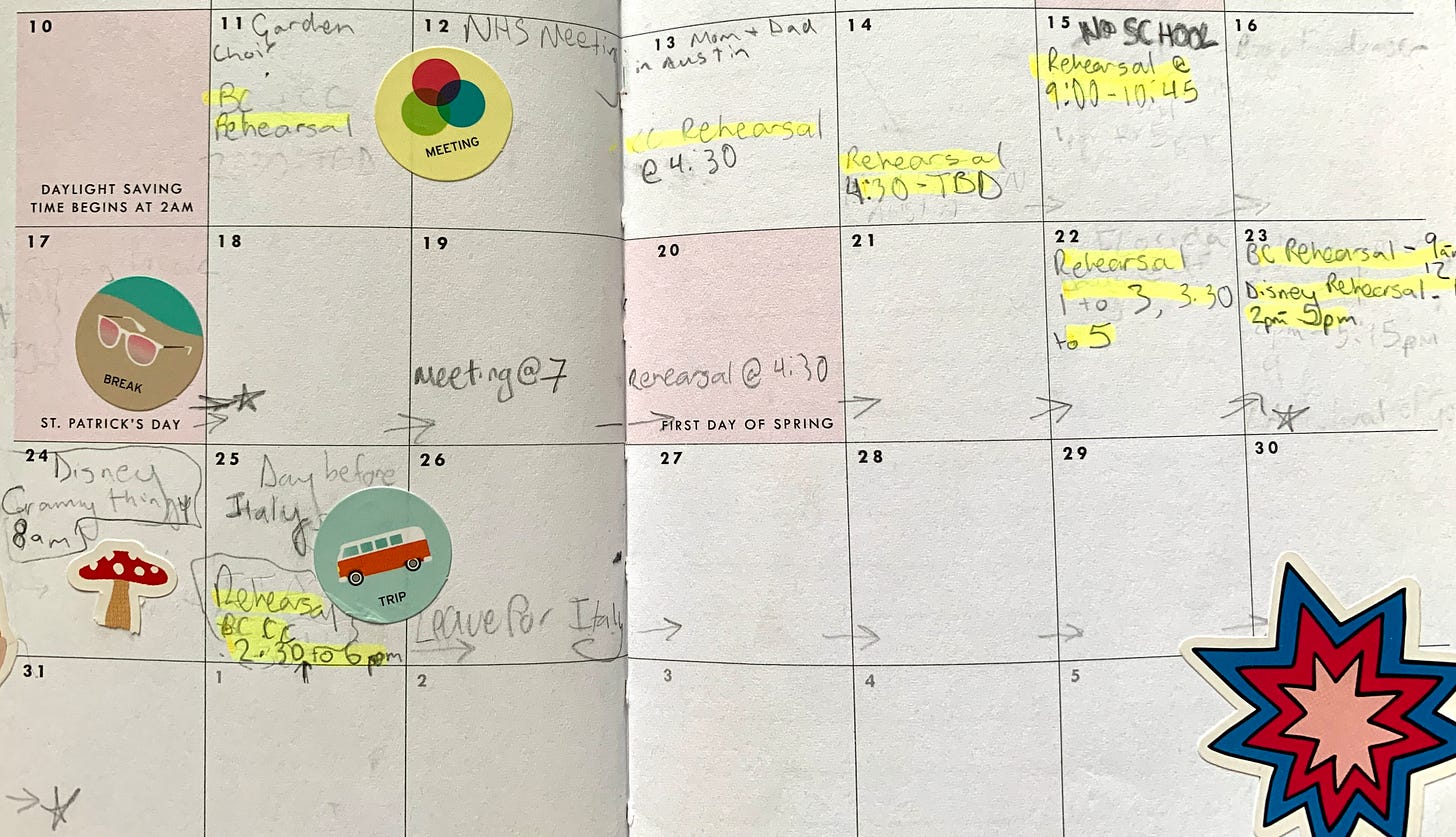 10
DAYLIGHT SAVING
TIME BEGINS AT 2AM
11 Garden
Choir
BC
Rehearsal
12 NHS Meeting
MEETING
13 Mom + Dad
in Austin
CC Rehearsal
@ 4:30
14
Rehearsal
4:30 - TBD
15 NO SCHOOL
Rehearsal @
9:00 - 10:45
16
17
BREAK
ST. PATRICK'S DAY
18
19
Meeting @ 7
20
Rehearsal @ 4:30
FIRST DAY OF SPRING
21
22
Rehearsal
1 to 3, 3:30
to 5
23
BC Rehearsal - 9am
12
Disney Rehearsal -
2pm 5pm
24 Disney
Grammy thingy
8am
25 Day before
Italy
Rehearsal
BC CC
2:30 to 6 pm
TRIP
26
Leave for Italy
27
28
29
30
31
1
2
3
4
5